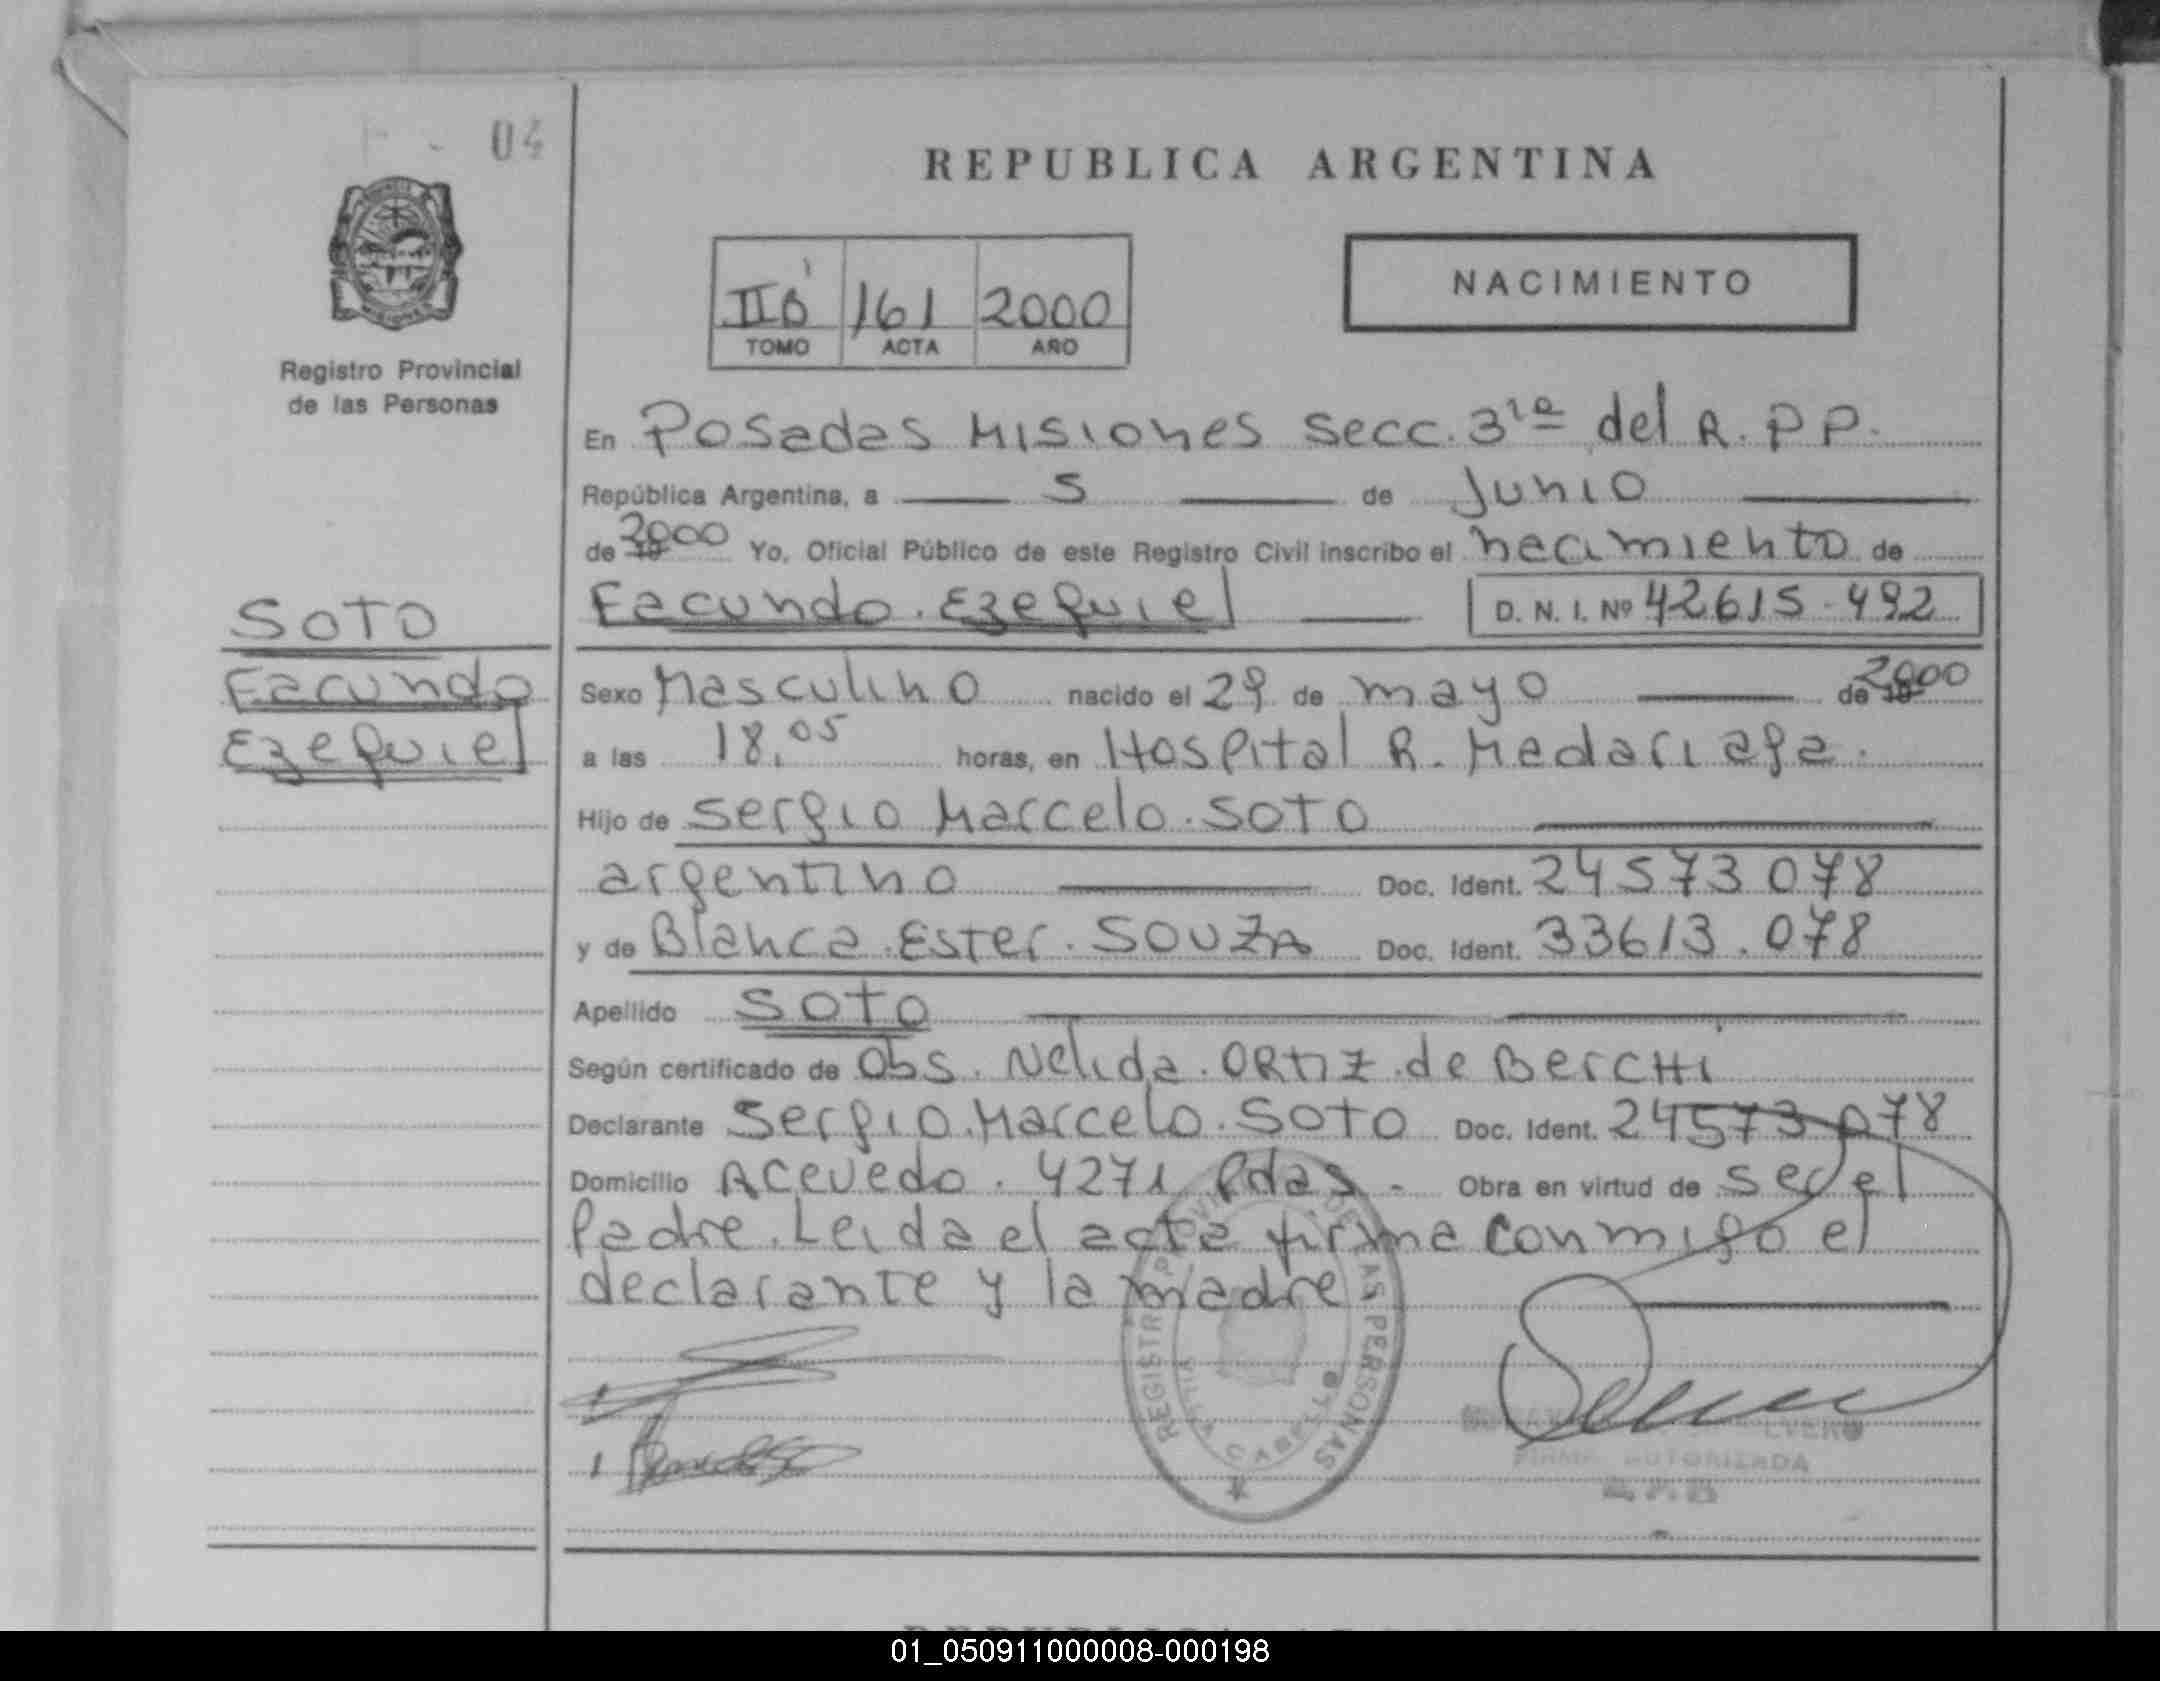 04
REPUBLICA ARGENTINA
NACIMIENTO
161 2000
TOMO ACTA AÑO
Registro Provincial
de las Personas
En Posadas Misiones Secc. 3ra del R.P.P.
República Argentina, a 5 de Junio
de 2000 Yo, Oficial Público de este Registro Civil inscribo el nacimiento de
Facundo Ezequiel D. N. I. Nº 42615.492
SOTO
Facundo
Ezequiel
Sexo Masculino nacido el 29 de mayo de 2000
a las 18,05 horas, en Hospital R. Madariaga.
Hijo de Sergio Marcelo SOTO
argentino Doc. Ident. 24573078
y de Blanca Ester SOUZA Doc. Ident. 33613.078
Apellido SOTO
Según certificado de Obs. Nelida ORTIZ de BerCHi
Declarante Sergio Marcelo SOTO Doc. Ident. 24573078
Domicilio Acevedo 4271 Pdas - Obra en virtud de ser el
Padre. Leida el acta firma conmigo el
declarante y la madre
REGISTRO PROVINCIAL DE LAS PERSONAS
FIRMA AUTORIZADA
01_050911000008-000198